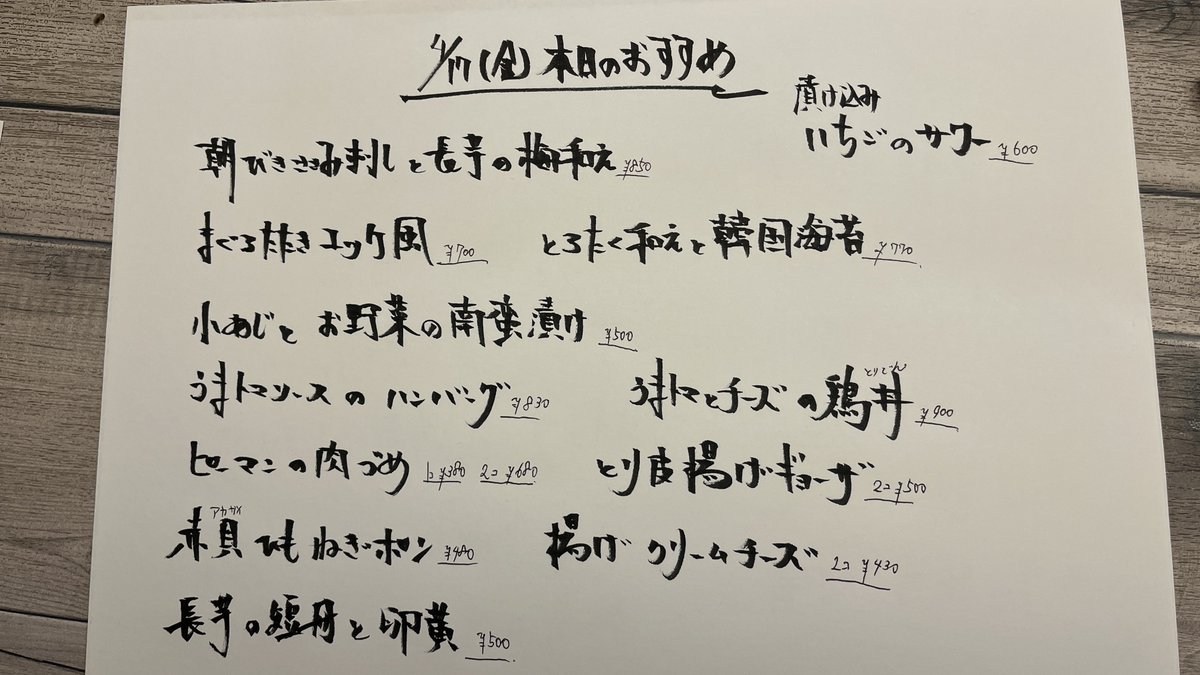 4/17(金)本日のおすすめ
漬け込み
いちごのサワー ¥600
朝びきささみ刺しと長芋の梅和え ¥850
まぐろたたきユッケ風 ¥700 とろたく和えと韓国海苔 ¥770
小あじとお野菜の南蛮漬け ¥500
うまトマソースのハンバーグ ¥830 うまトマとチーズの鶏丼 ¥900
とりどん
ピーマンの肉づめ 1コ¥380 2コ¥680 とり皮揚げギョーザ 2コ¥500
赤貝ひもねぎポン ¥480 揚げクリームチーズ 2コ¥430
長芋の短冊と卵黄 ¥500